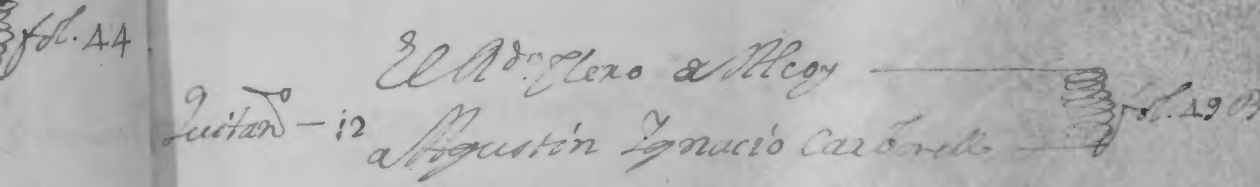 fol. 44
El Rdo Clero de Alcoy
Quitan.º - 12
a Agustin Ygnacio Carbonell
fol. 49